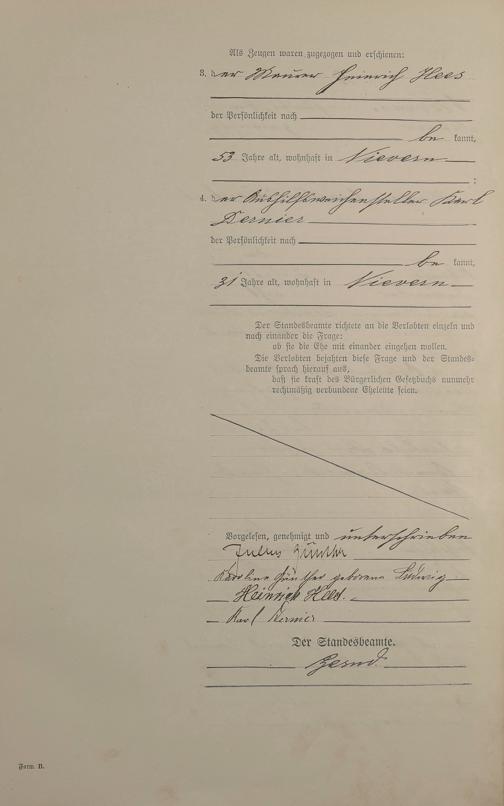 Als Zeugen waren zugezogen und erschienen:
3. der Maurer Heinrich Hees
der Persönlichkeit nach
be kannt,
53 Jahre alt, wohnhaft in Nievern
;
4. der Aushilfsweichensteller Karl
Dernier
der Persönlichkeit nach
be kannt,
31 Jahre alt, wohnhaft in Nievern
Der Standesbeamte richtete an die Verlobten einzeln und
nach einander die Frage:
ob sie die Ehe mit einander eingehen wollen.
Die Verlobten bejahten diese Frage und der Standes-
beamte sprach hierauf aus,
daß sie kraft des Bürgerlichen Gesetzbuchs nunmehr
rechtmäßig verbundene Eheleute seien.
Vorgelesen, genehmigt und unterschrieben
Julius Günther
Karoline Günther geborene Ludwig
Heinrich Hees.
Karl Dernier
Der Standesbeamte.
Form. B.